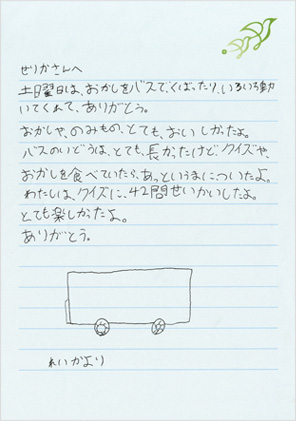 せりかさんへ
土曜日は、おかしをバスで、くばったり、いろいろ動
いてくれて、ありがとう。
おかしや、のみもの、とても、おいしかったよ。
バスのいどうは、とても、長かったけど、クイズや、
おかしを食べていたら、あっというまについたよ。
わたしは、クイズに、42問せいかいしたよ。
とても楽しかったよ。
ありがとう。
れいかより